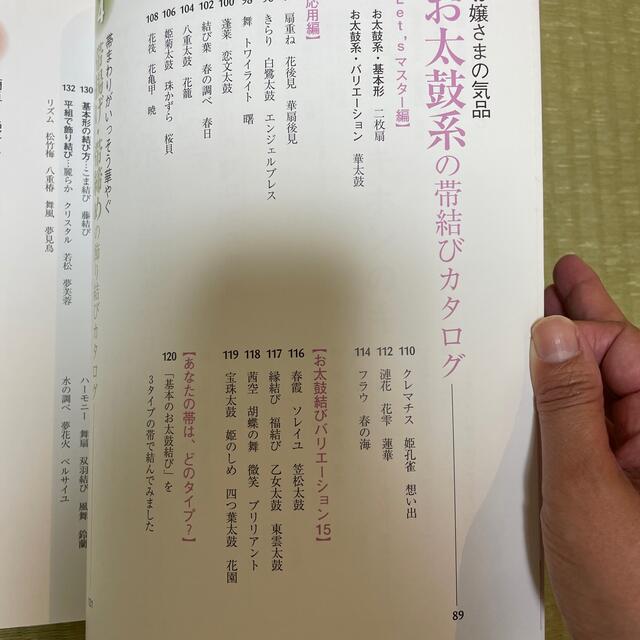 お嬢さまの気品
お太鼓系の帯結びカタログ
89
Let'sマスター編】
お太鼓系・基本形 二枚扇
お太鼓系・バリエーション 華太鼓
応用編】
扇重ね 花後見 華扇後見
きらり 白鷺太鼓 エンジェルブレス
98 舞 トワイライト 曙
100 蓬莱 恋文太鼓
102 結び葉 春の調べ 春日
104 八重太鼓 花籠
106 姫菊太鼓 珠かずら 桜貝
108 花筏 花亀甲 暁
110 クレマチス 姫孔雀 想い出
112 漣花 花雫 蓮華
114 フラウ 春の海
【お太鼓結びバリエーション15】
116 春霞 ソレイユ 笠松太鼓
117 縁結び 福結び 乙女太鼓 東雲太鼓
118 茜空 胡蝶の舞 微笑 ブリリアント
119 宝珠太鼓 姫のしめ 四つ葉太鼓 花園
【あなたの帯は、どのタイプ?】
120 「基本のお太鼓結び」を
3タイプの帯で結んでみました
帯まわりがいっそう華やぐ
の飾り結びカタログ
121
130 基本形の結び方…こま結び 藤結び
ハーモニー 舞扇 双羽結び 風舞 鈴蘭
132 平組で飾り結び…麗らか クリスタル 若松 夢芙蓉
水の調べ 夢花火 ベルサイユ
リズム 松竹梅 八重椿 舞風 夢見鳥